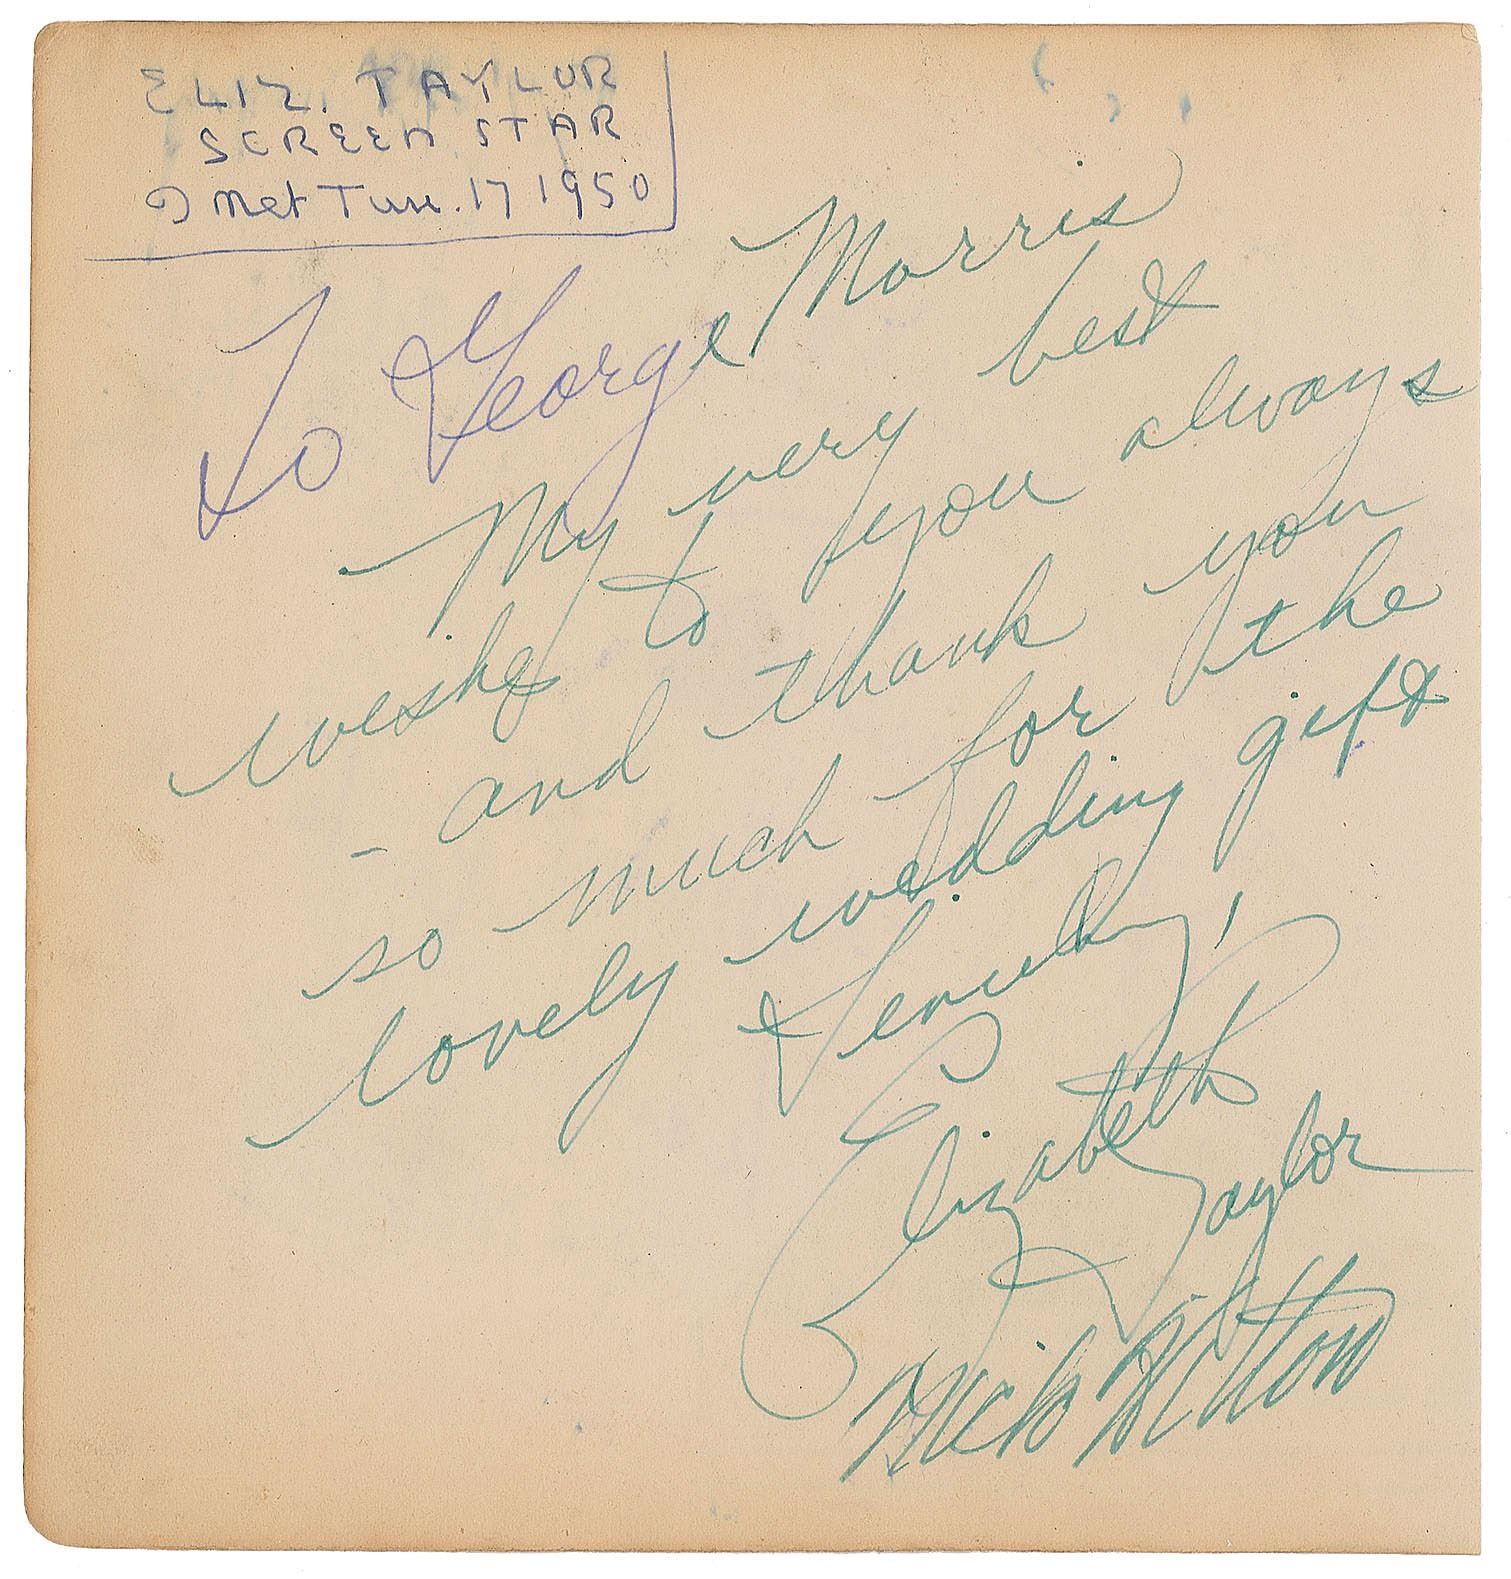 ELIZ. TAYLOR
SCREEN STAR
I Met June. 17 1950
To George Morris
My very best
wishes to you always
- and thank you
so much for the
lovely wedding gift
Sincerely,
Elizabeth
Taylor
Nick Hilton